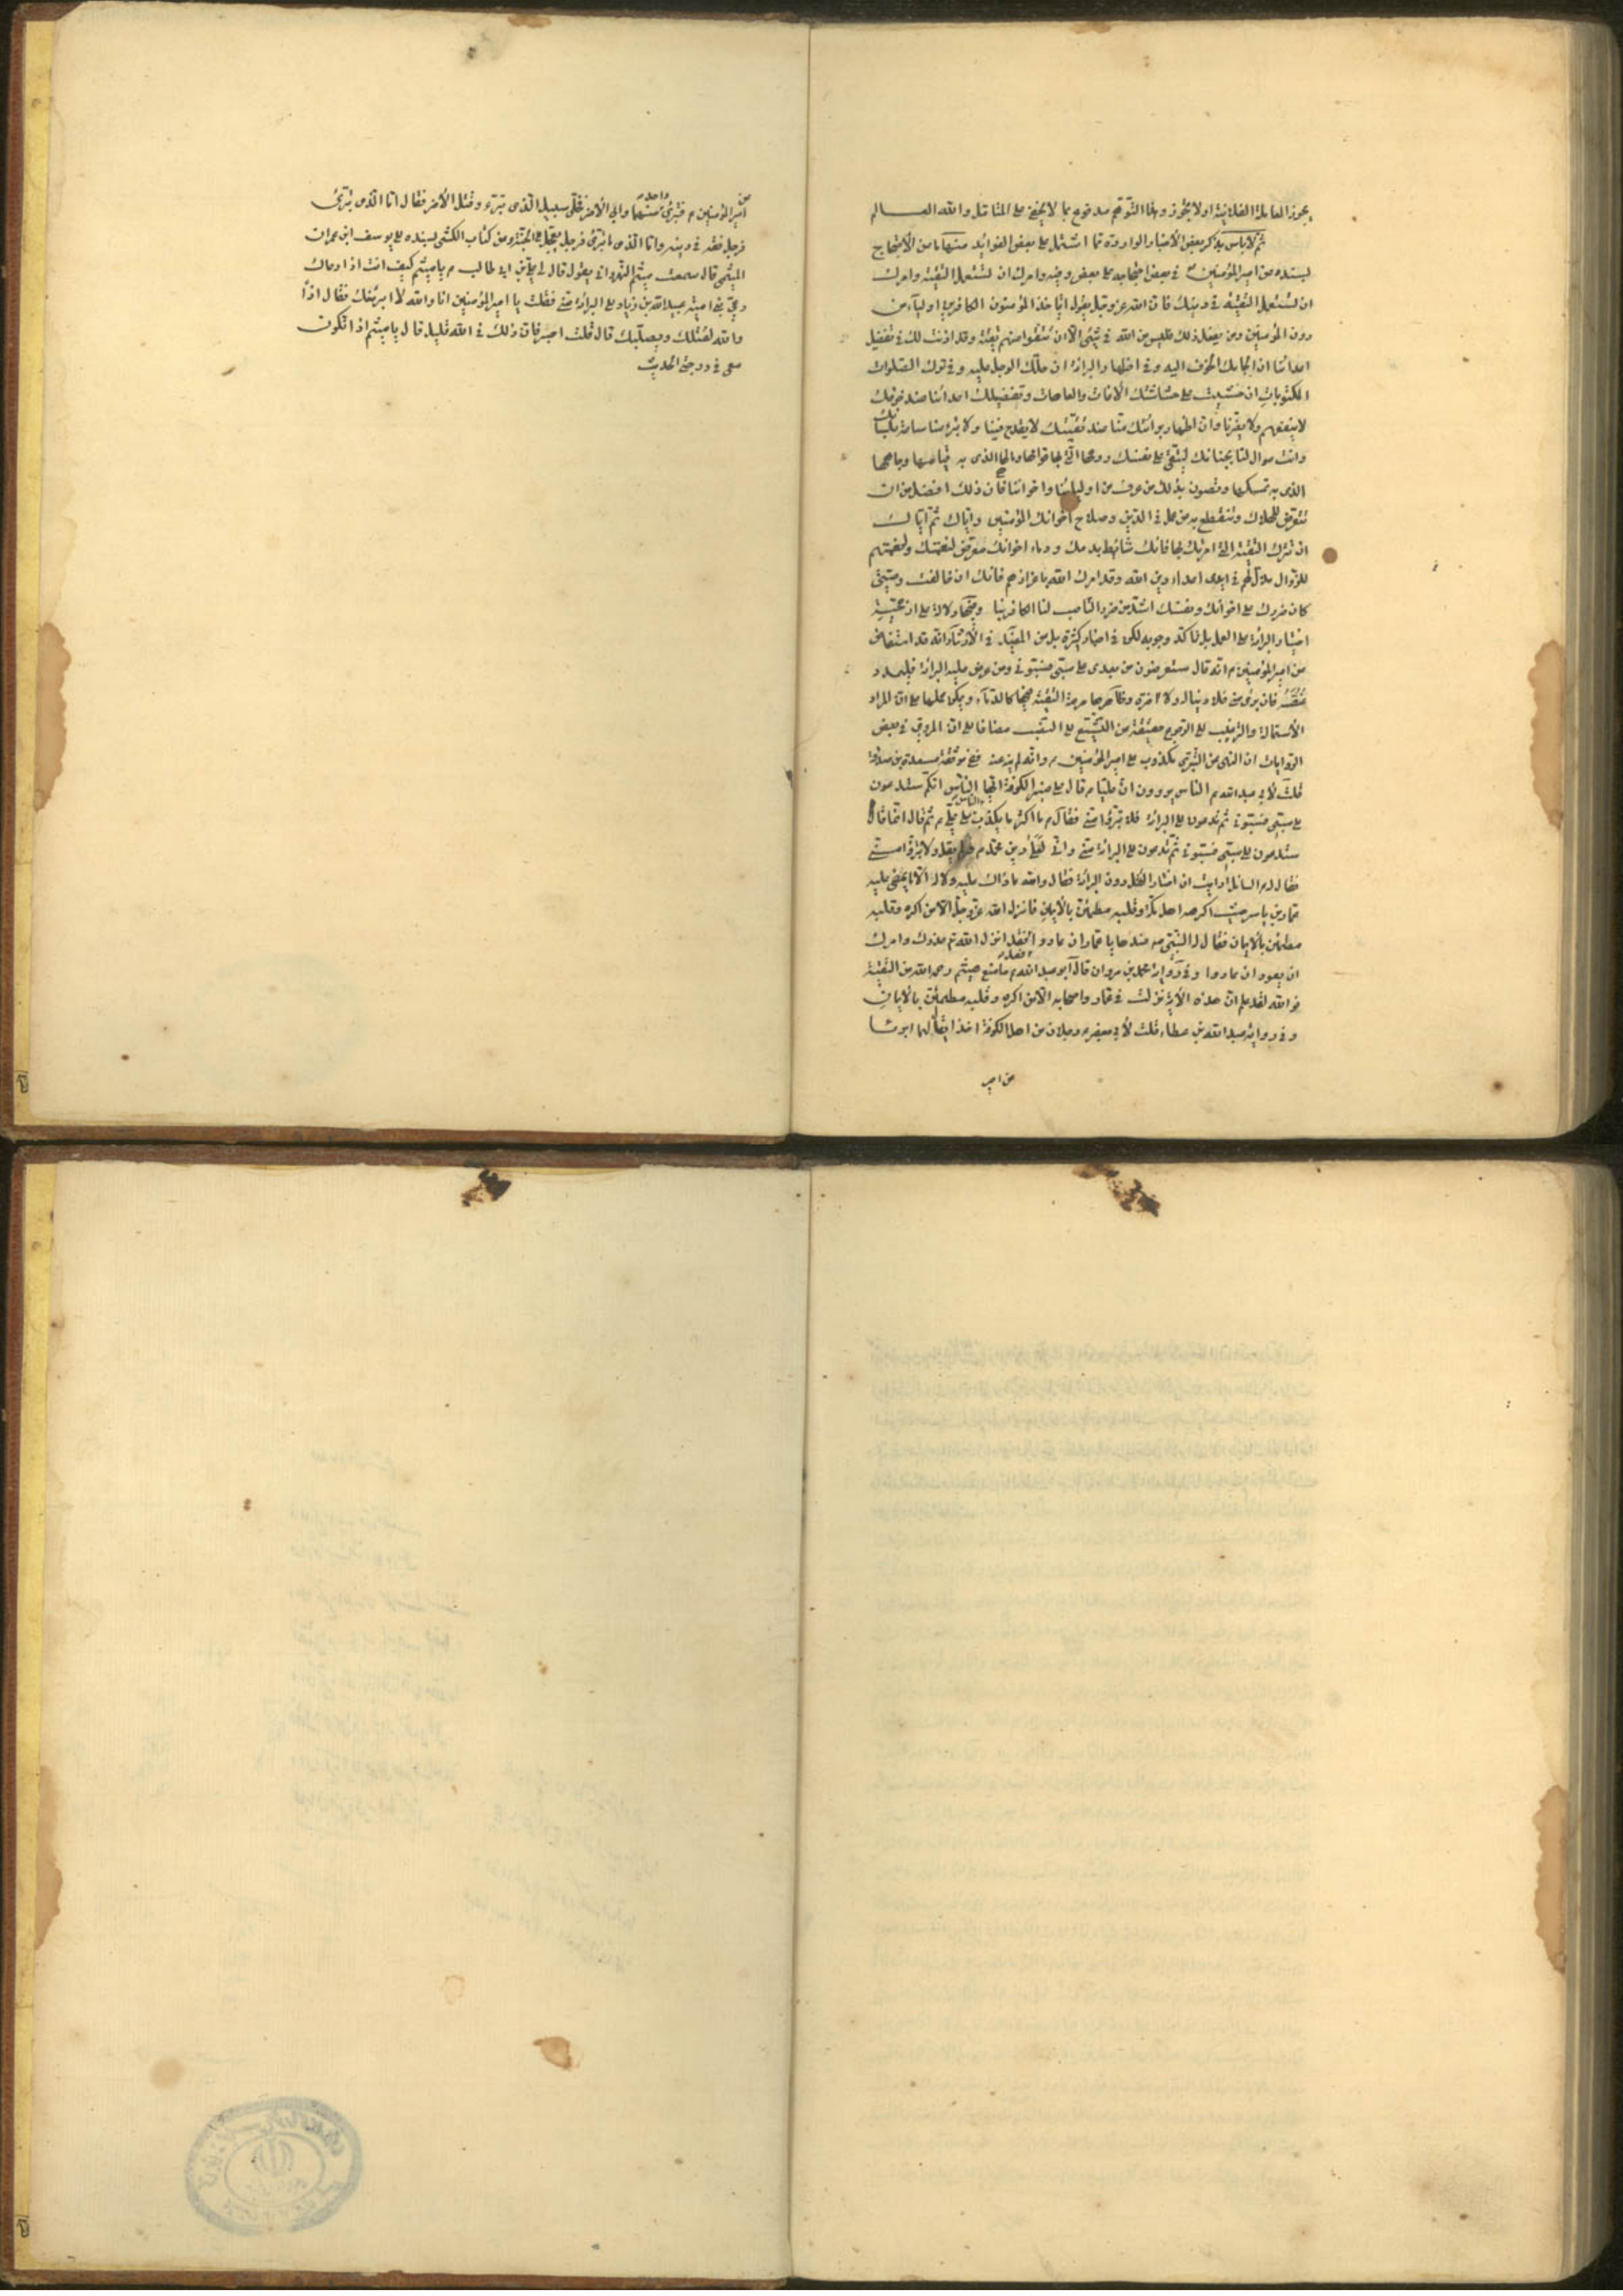 يجوز المعاملة الفلانية او لا يجوز وهذا التوهم مدفوع بما لا يخفى على المتأمل والله العالم
ثم لا بأس بذكر بعض الأخبار الواردة مما اشتمل على بعض الفوائد منها ما من الاحتجاج
بسنده عن امير المؤمنين ع في بعض احتجاجه على بعض وفيه وامرك ان تستعمل التقية وامرك
ان تستعمل التقية في دينك فان الله عز وجل يقول لا يتخذ المؤمنون الكافرين اولياء من
دون المؤمنين ومن يفعل ذلك فليس من الله في شيء الا ان تتقوا منهم تقية وقد اذنت لك في تفضيل
اعدائنا ان الجاءك الخوف اليه وفي اظهار البرائة ان حملك الوجل عليه وفي ترك الصلوات
المكتوبات ان خشيت على حشاشتك الآفات والعاهات وتفضيلك اعدائنا عند خوفك
لا ينفعهم ولا يضرنا وان اظهار برائتك منا عند تقيتك لا يقدح فينا ولا تبرء منا ساعة بلسانك
وانت موال لنا بجنانك لتتقي على نفسك روحها التي بها قوامها ومالها الذي به قيامها وجاهها
الذي به تمسكها وتصون بذلك من عرف من اوليائنا واخواننا فان ذلك افضل من ان
تتعرض للهلاك وتنقطع به من عمل في الدين وصلاح اخوانك المؤمنين واياك ثم اياك
ان تترك التقية التي امرتك بها فانك شائط بدمك ودماء اخوانك معرض لنعمتك ولنعمتهم
للزوال مذل لهم في ايدي اعداء دين الله وقد امرك الله باعزازهم فانك ان خالفت وصيتي
كان ضررك على اخوانك ونفسك اشد من ضرر الناصب لنا الكافر بنا وفيها دلالة على ارجحية
اختيار البرائة على العمل بل تأكد وجوبه لكن في اخبار كثيرة بل عن المفيد في الارشاد انه قد استفاض
عن امير المؤمنين ع انه قال ستعرضون من بعدي على سبي فسبوني ومن عرض عليه البرائة فليمدد
عنقه فان برئ مني فلا دنيا له ولا آخرة وظاهرها حرمة التقية فيها كالدماء ويمكن حملها على ان المراد
الاستمالة والترغيب الى الرجوع حقيقة عن التشيع الى النصب مضافا الى ان المروي في بعض
الروايات ان النهي من التبري مكذوب على امير المؤمنين ع وانه لم ينه عنه ففي موثقة مسعدة بن صدقة
قلت لأبي عبد الله ع ان الناس يروون ان عليا ع قال على منبر الكوفة ايها الناس انكم ستدعون
الى سبي فسبوني ثم تدعون الى البرائة فلا تبرؤا مني فقال ع ما اكثر ما يكذب الناس على علي ع ثم قال انما قال
ستدعون الى سبي فسبوني ثم تدعون الى البرائة مني واني لعلى دين محمد ص ولم يقل ولا تبرؤا مني
فقال له السائل أرأيت ان اختار القتل دون البرائة فقال والله ما ذاك عليه ولا له الا ما مضى عليه
عمار بن ياسر حيث اكرهه اهل مكة وقلبه مطمئن بالايمان فانزل الله عز وجل الا من اكره وقلبه
مطمئن بالايمان فقال له النبي ص عندها يا عمار ان عادوا فعد فقد انزل الله تع عذرك وامرك
ان تعود ان عادوا وفي رواية محمد بن مروان قال ابو عبد الله ع ما منع ميثم رحمه الله من التقية
فو الله لقد علم ان هذه الآية نزلت في عمار واصحابه الا من اكره وقلبه مطمئن بالايمان
وفي رواية عبد الله بن عطاء قلت لأبي جعفر ع رجلان من اهل الكوفة اخذا فقيل لهما ابرئا
من امير
من
امير المؤمنين ع فتبرئ واحد منهما وابى الآخر فخلى سبيل الذي تبرء وقتل الآخر فقال اما الذي تبرئ
فرجل فقيه في دينه واما الذي لم يتبرئ فرجل تعجل الى الجنة ومن كتاب الكشي بسنده الى يوسف ابن عمران
الميثمي قال سمعت ميثم النهرواني يقول قال لي علي بن ابي طالب ع يا ميثم كيف انت اذا دعاك
دعي بني امية عبيد الله بن زياد الى البرائة مني فقلت يا امير المؤمنين انا والله لا ابرئ منك فقال اذا
والله لقتلك ويصلبك قال قلت اصبر فان ذلك في الله قليل قال يا ميثم اذا تكون
معي في درجتي الحديث